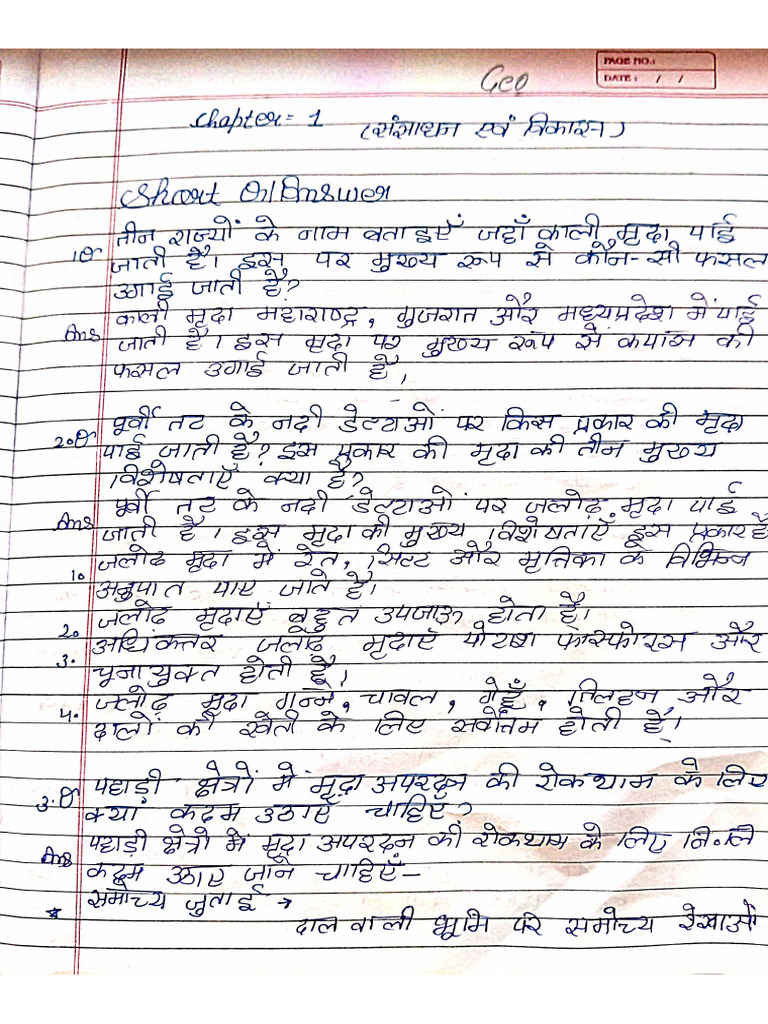 Geo
PAGE NO.:
DATE: / /
Chapter = 1 (संसाधन एवं विकास)
Short Q/Answer
1Q तीन राज्यों के नाम बताइएँ जहाँ काली मृदा पाई
जाती है। इस पर मुख्य रूप से कौन-सी फसल
उगाई जाती है?
Ans काली मृदा महाराष्ट्र, गुजरात और मध्यप्रदेश में पाई
जाती है। इस मृदा पर मुख्य रूप से कपास की
फसल उगाई जाती है,
2.Q पूर्वी तट के नदी डेल्टाओं पर किस प्रकार की मृदा
पाई जाती है? इस प्रकार की मृदा की तीन मुख्य
विशेषताएँ क्या है?
Ans पूर्वी तट के नदी डेल्टाओं पर जलोढ़ मृदा पाई
जाती है। इस मृदा की मुख्य विशेषताएँ इस प्रकार है
1. जलोढ मृदा में रेत, सिल्ट और मृत्तिका के विभिन्न
अनुपात पाए जाते है।
2. जलोढ मृदाएँ बहुत उपजाऊ होता है।
3. अधिकतर जलोढ मृदाएँ पोटाश फॉस्फोरस और
चूनायुक्त होती है।
4. जलोढ़ मृदा गन्ने, चावल, गेहूँ, तिलहन और
दालों की खेती के लिए सर्वोत्तम होती है।
3.Q पहाड़ी क्षेत्रों में मृदा अपरदन की रोकथाम के लिए
क्या कदम उठाएँ चाहिएँ?
Ans पहाड़ी क्षेत्रों में मृदा अपरदन की रोकथाम के लिए नि.लि
कदम उठाए जाने चाहिएँ-
* समोच्य जुताई →
ढाल वाली भूमि पर समोच्य रेखाओं